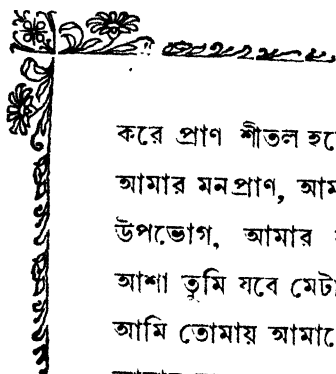 করে প্রাণ শীতল
আমার মনপ্রাণ,
উপভোগ, আমার
আশা তুমি যবে
আমি তোমায়